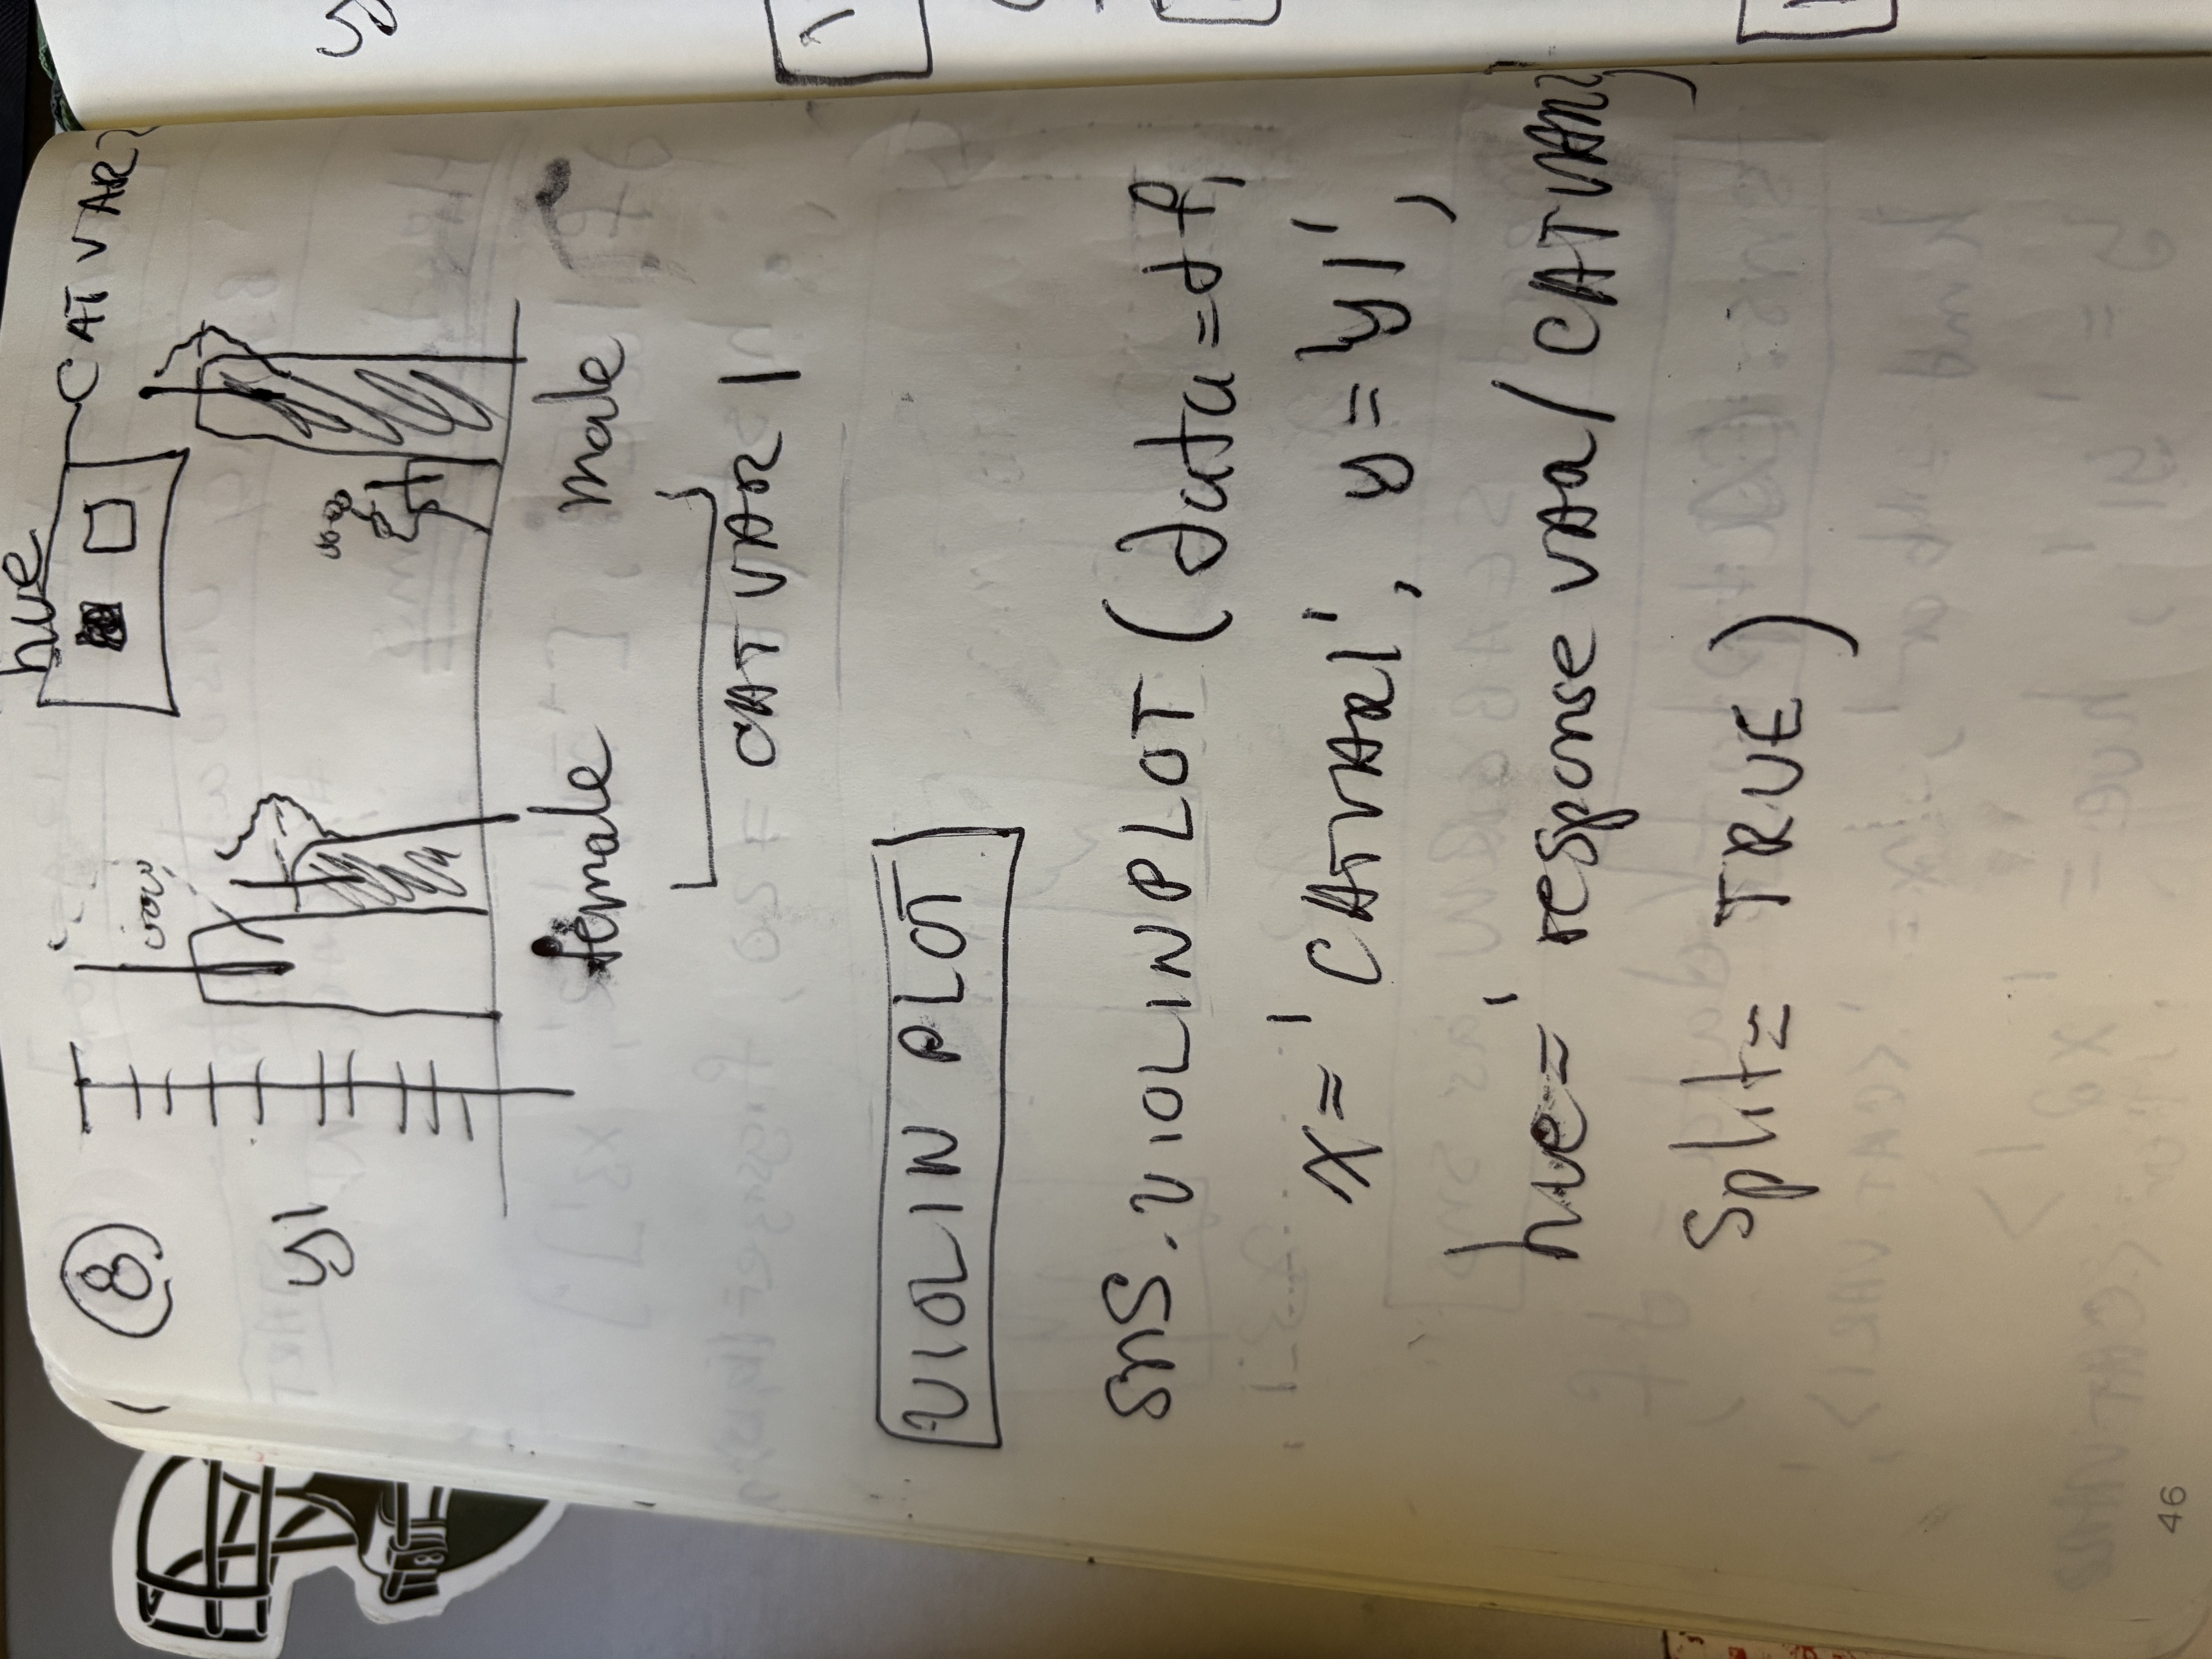 hue
⑧
CATVAR2
y1
female male
CATVAR1
VIOLIN PLOT
sns.VIOLINPLOT (data=df,
x='CATVAR1', y='y1',
hue='response VAR/CATVAR2,
split= TRUE)
46